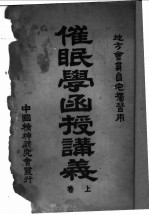 地方會員自宅獨習用
催眠學函授講義
上
卷
中國精神研究會發行